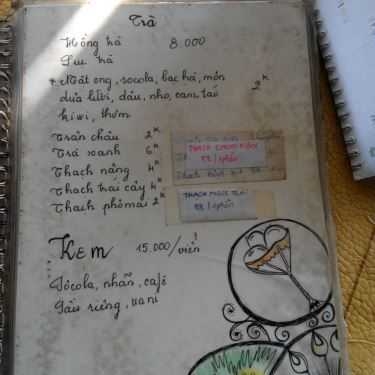 Trà
Hồng trà 8.000
Sưu trà
* Mật ong, socola, bạc hà, món
dưa lưới, dâu, nho, cam, táo 2K
kiwi, thơm
Trân châu 2K
Trà xanh 6K
Thạch nắng 4K
Thạch trái cây 4K
Thạch phômai 2K
THẠCH
/1phần
THẠCH
/1phần
Kem 15.000/viên
Sôcola, nhãn, café
Sầu riêng, vani